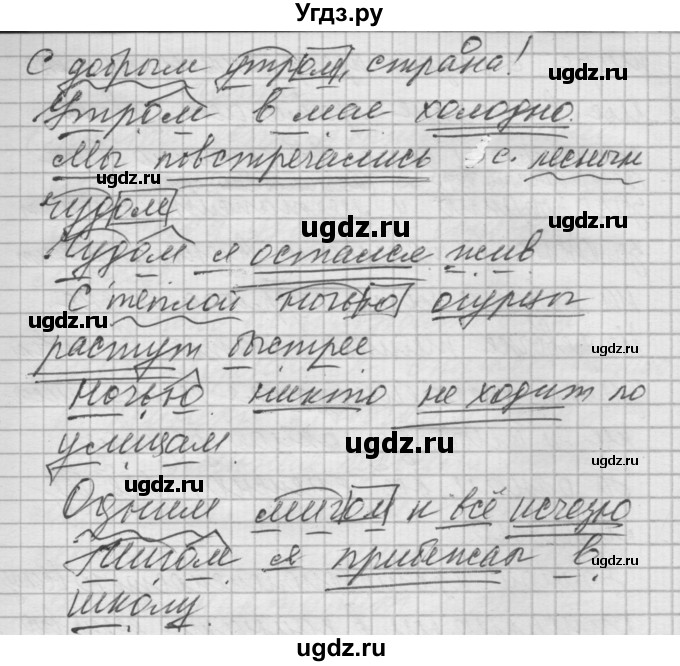 Угдз.ру
С добрым утром, страна!
ugdz.ru
Утром в мае холодно.
Мы повстречались с лесным
ugdz.ru
чудом
ugdz.ru ugdz.ru
Чудом я остался жив
С тёплой ночью огурцы
ugdz.ru
растут быстрее
ugdz.ru
Ночью никто не ходит по
улицам. ugdz.ru ugdz.ru
ugdz.ru
Одним мигом и всё исчезло
Мигом я прибежал в
ugdz.ru ugdz.ru
школу.
ugdz.ru